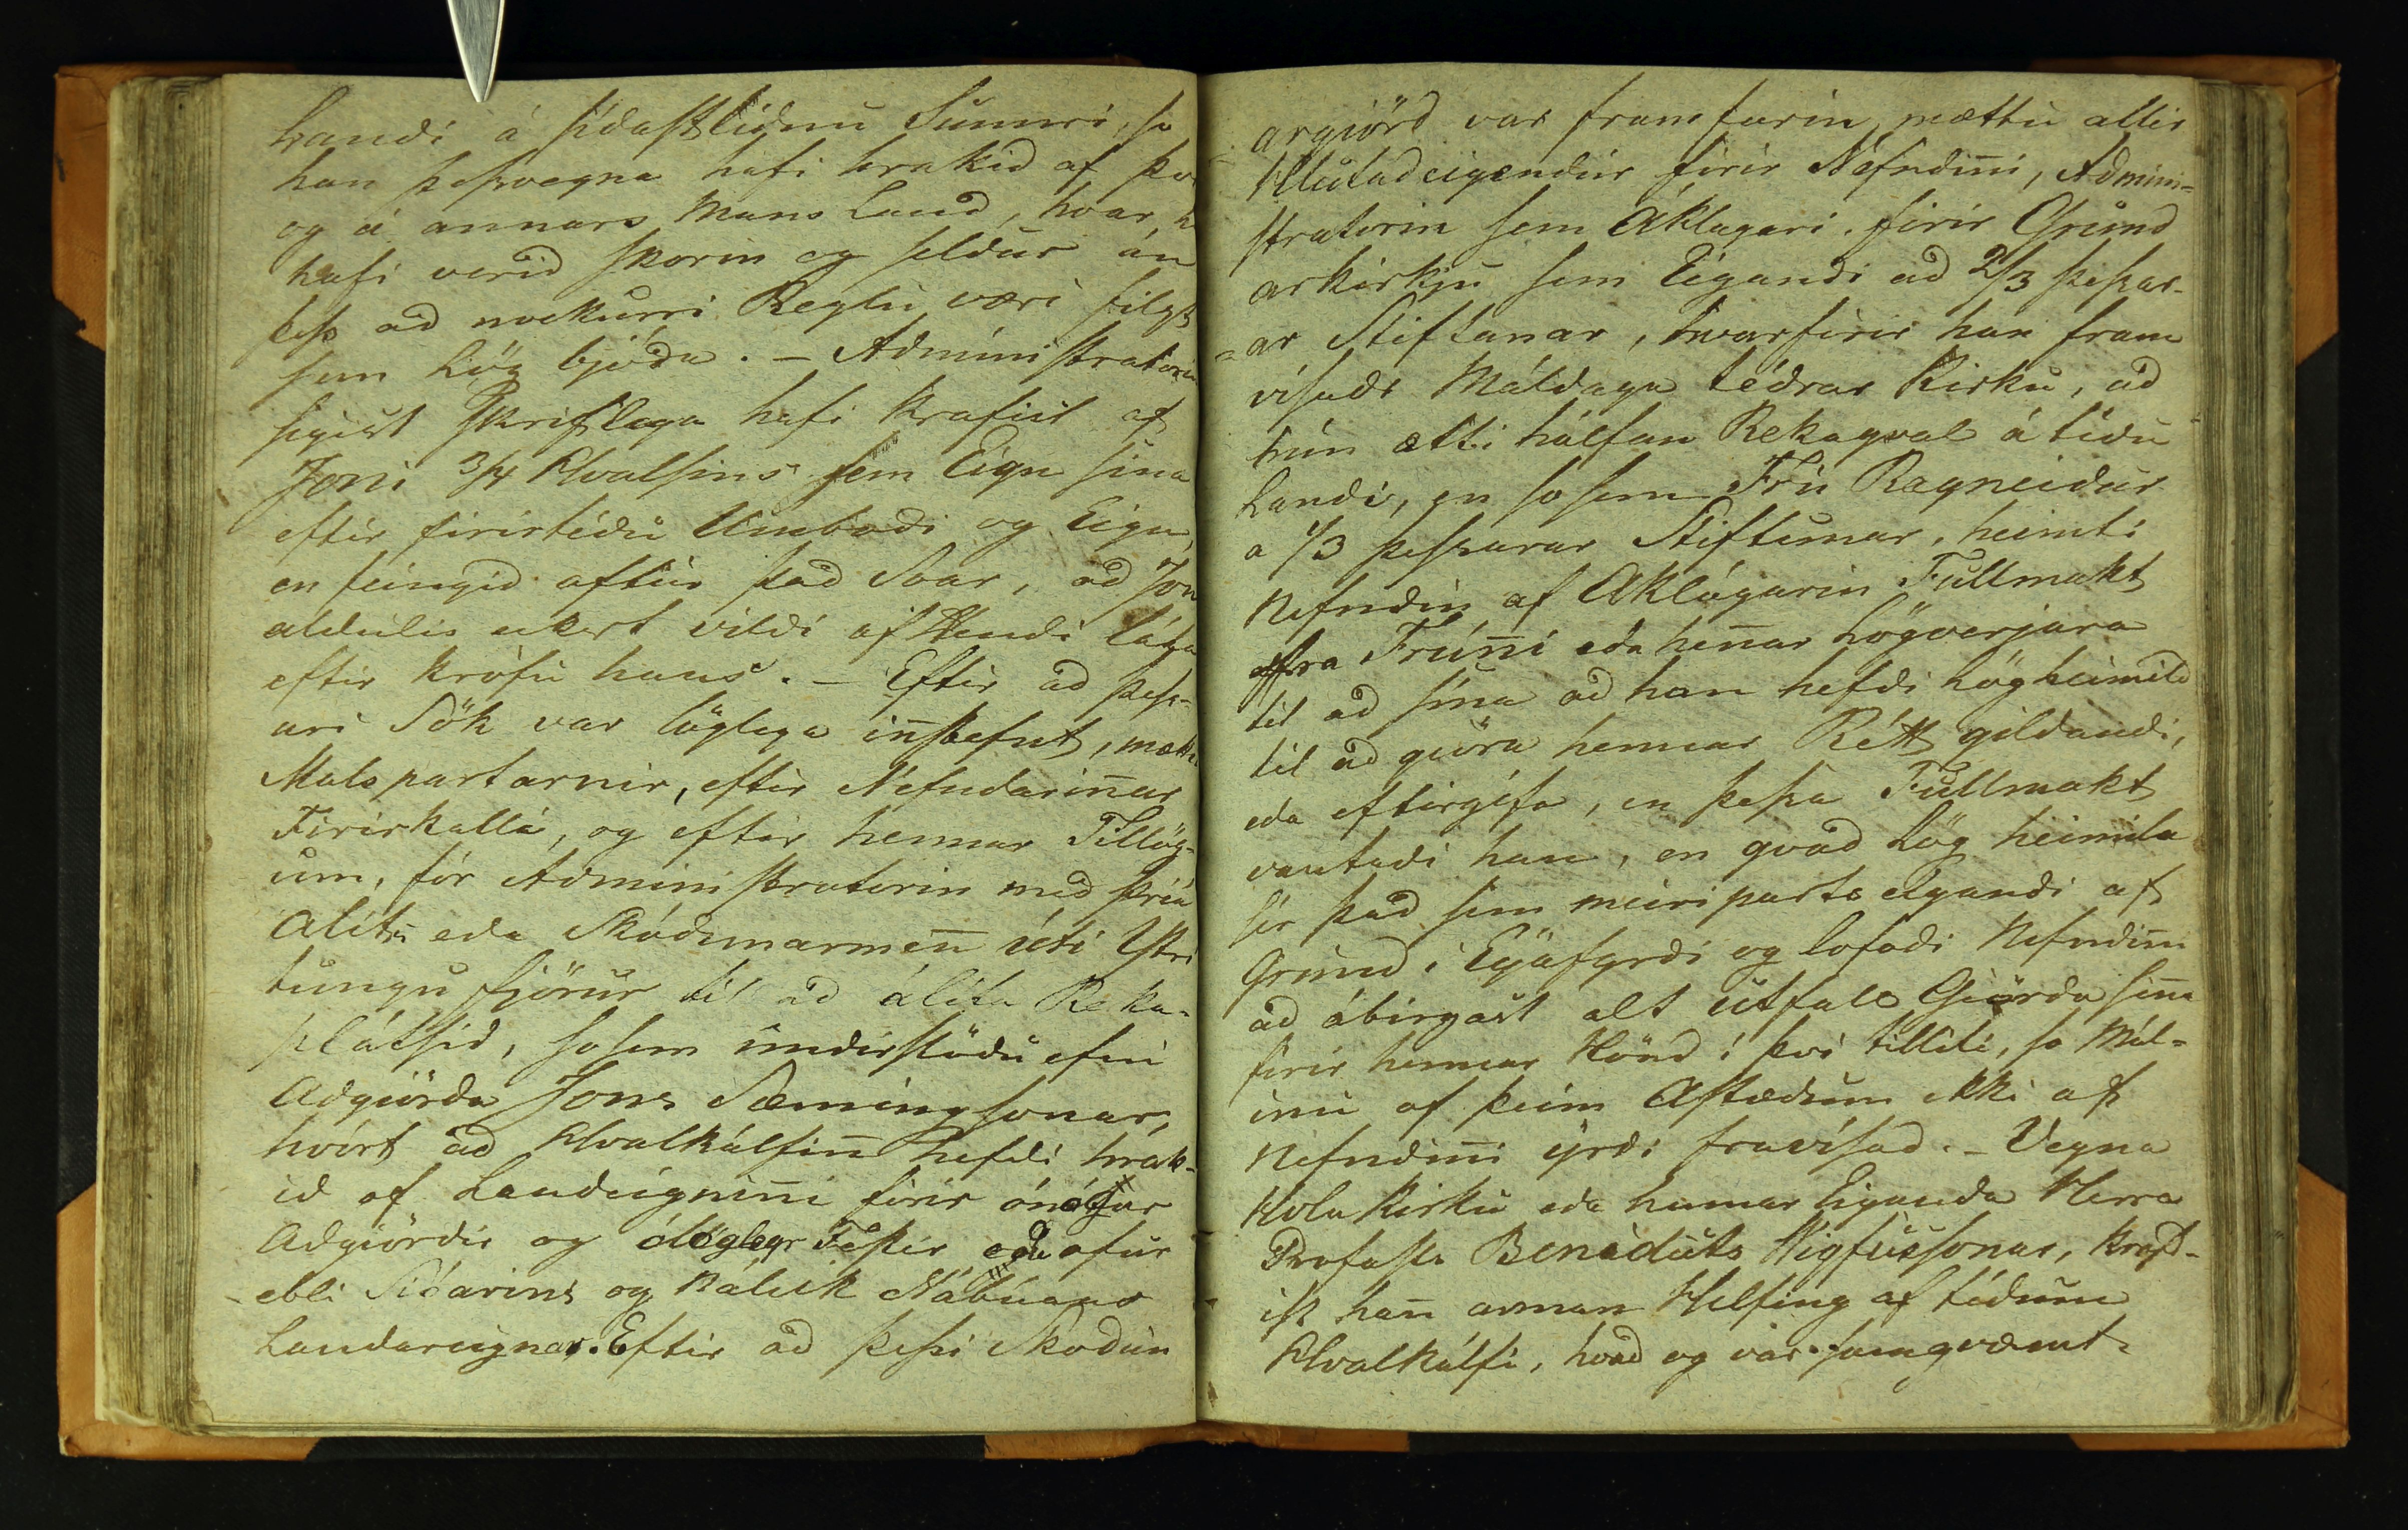 Landi á sídastlidnu Sumri, so
han þessvegna hafi hrakid af því
og á annars Mans Land, hvar h
hafi verid skorin og seldur án
þess ad nockurri Reglu væri filgt
sem Lög bjóda. – Administratorin
segist skriflaga hafi krafist af
Joni 3/4 Hvalsins sem Eign sína
eftir firirtédu Umbodi og Eign,
en feingid aftur þad Svar, ad Jon
aldeilis eckert vildi af Hendi láta
eftir kröfu hans. – Eftir ad þess-
ari Sök var löglega in̄stefnt, mættu
Malspartarnir, eftir Nefndarin̄ar
Firirkalli, og eftir hennar Tillög-
um, fór Administratorin med þriá
Alits eda Skodunarmen̄ úti Ytri
tungu fjörur til ad álíta Reka-
plátsid, sosem undirstödu efni
Adgiörda Jons Sæmingssonar,
hvört ad Hvalkálfin̄ hefdi hrak-
id af Landeignin̄i firir ónógar
Adgiördir og ólöglegr Festir, eda ofur
ebli Sióarins og Kálcik Nábúans
Landareignar. Eftir ad þessi Skodun
argiörd var framfarin, mættu allir
Hlutadeigendur firir Nefndin̄i, Admini-
stratorin sem Aklagari, firir Grund
arkirkju sem Eigandi ad 2/3 þessar-
ar Stiftunar, hvarfirir han fram
vísadi Máldaga tédrar Kirku, ad
hún ætti hálfan Rekaqval á tédu
Landi, en so sem Frú Ragneidur
a 1/3 þessarar Stiftunar, heimti
Nefndin af Aklagarin Fullmakt
frá Frún̄i eda hen̄ar Lögverjara
til ad sína ad han hefdi Lögheimild
til ad giöra hennar Rétt gildandi,
eda eftirgéfa, en þessa Fullmakt
vantadi han, en qvad Lög heimila
sér þad sem meiriparts eigandi af
Grund i Eyafyrdi og lofadi Nefndin̄i
ad ábirgast alt útfall Giörda sin̄a
firir hennar Hönd í því tilliti, so Mál-
inu af þeim Astædum ekki af
Nefndin̄i yrdi frávísad. – Vegna
Hola Kirku eda hennar Eiganda Herra
Profasts Benedicts Vigfússonar, krafd-
ist han̄ annan Helfing af tédum
Hvalkálfi, hvad og var samqvæmt